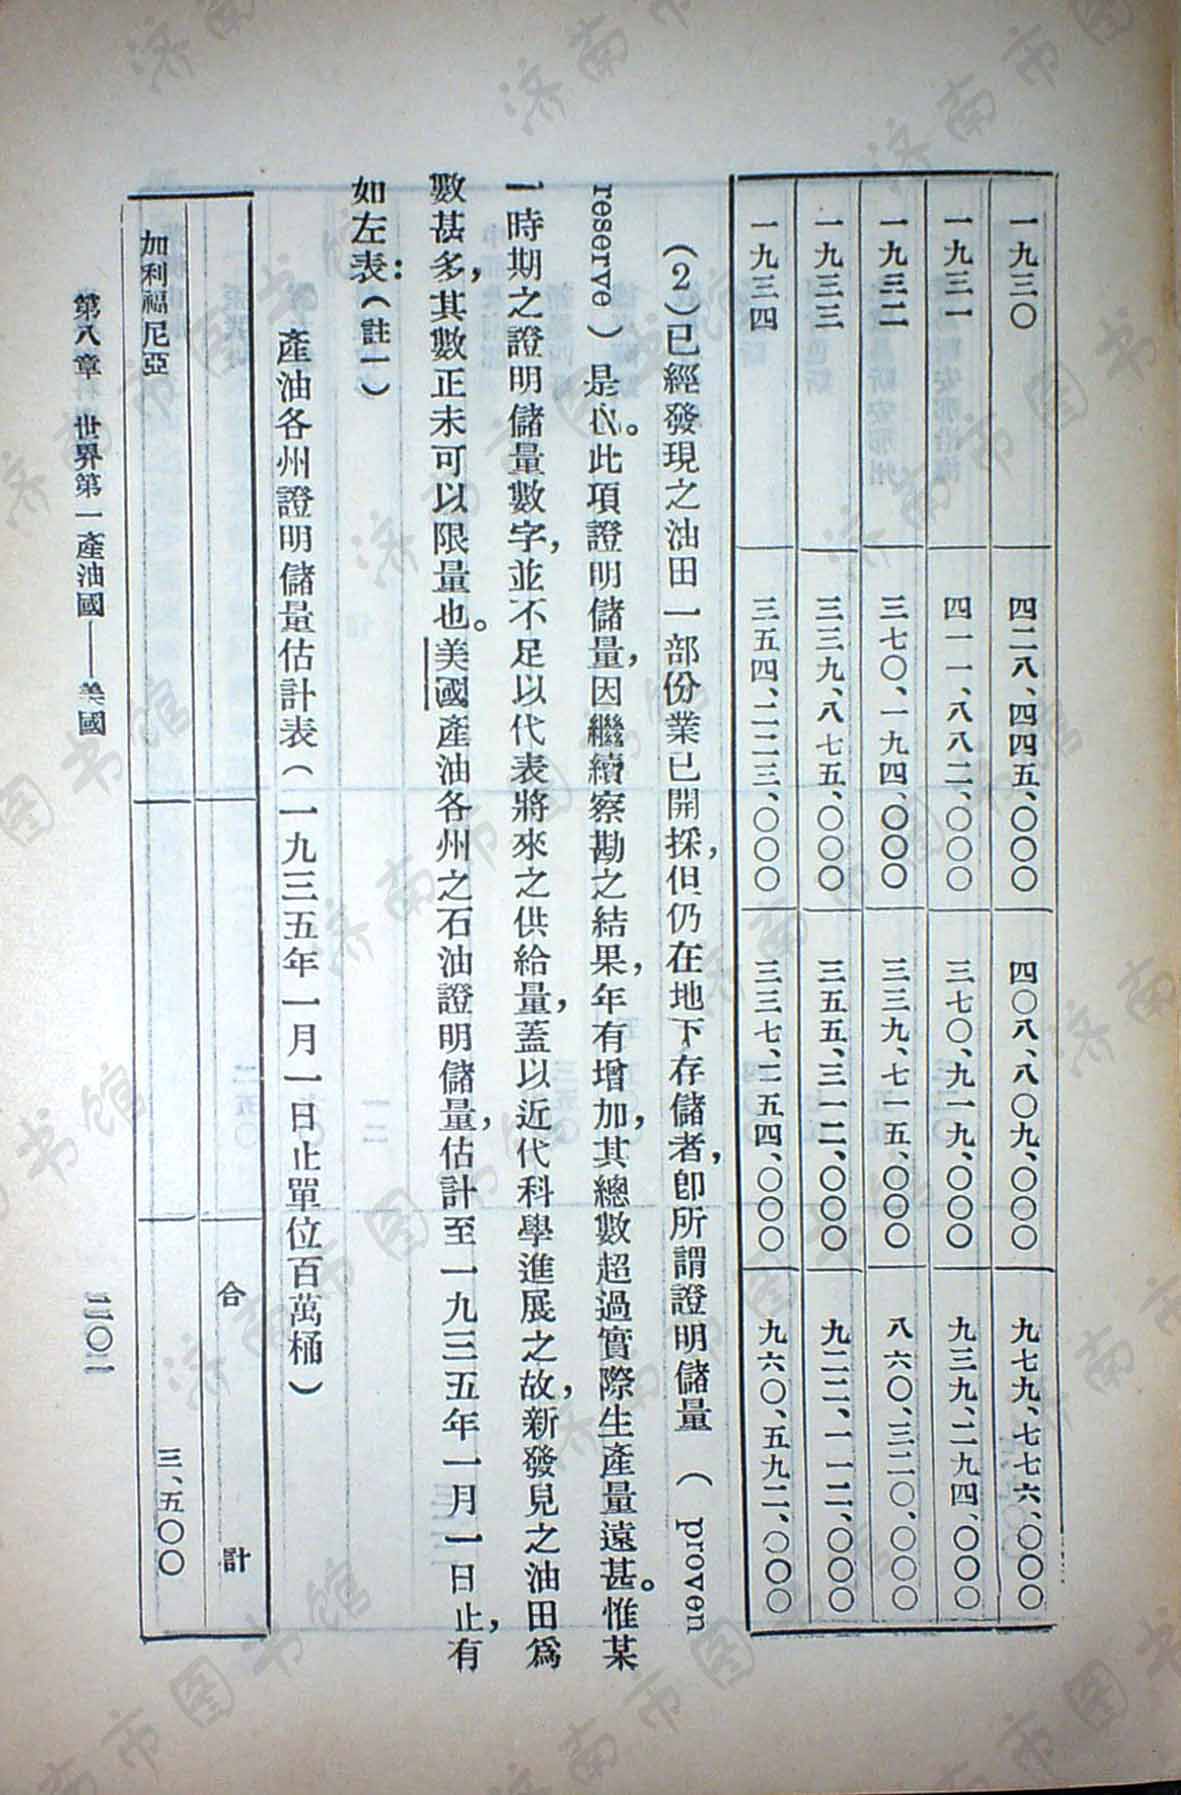 一九三〇 四二八、四四五、〇〇〇 四〇八、八〇九、〇〇〇 九七九、七七六、〇〇〇
一九三一 四一一、八八二、〇〇〇 三七〇、九一九、〇〇〇 九三九、二九四、〇〇〇
一九三二 三七〇、一九四、〇〇〇 三三九、七一五、〇〇〇 八六〇、三二〇、〇〇〇
一九三三 三三九、八七五、〇〇〇 三五五、三一二、〇〇〇 九二二、一一二、〇〇〇
一九三四 三五四、二二三、〇〇〇 三三七、二五四、〇〇〇 九六〇、五九二、〇〇〇
(2)已經發現之油田一部份業已開採，但仍在地下存儲者，卽所謂證明儲量 (proven
reserve) 是也。此項證明儲量，因繼續察勘之結果，年有增加，其總數超過實際生產量遠甚。惟某
一時期之證明儲量數字，並不足以代表將來之供給量，蓋以近代科學進展之故，新發見之油田爲
數甚多，其數正未可以限量也。美國產油各州之石油證明儲量，估計至一九三五年一月一日止，有
如左表：(註一)
產油各州證明儲量估計表(一九三五年一月一日止單位百萬桶)
合計
加利福尼亞 三、五〇〇
第八章 世界第一產油國——美國
济南市图书馆